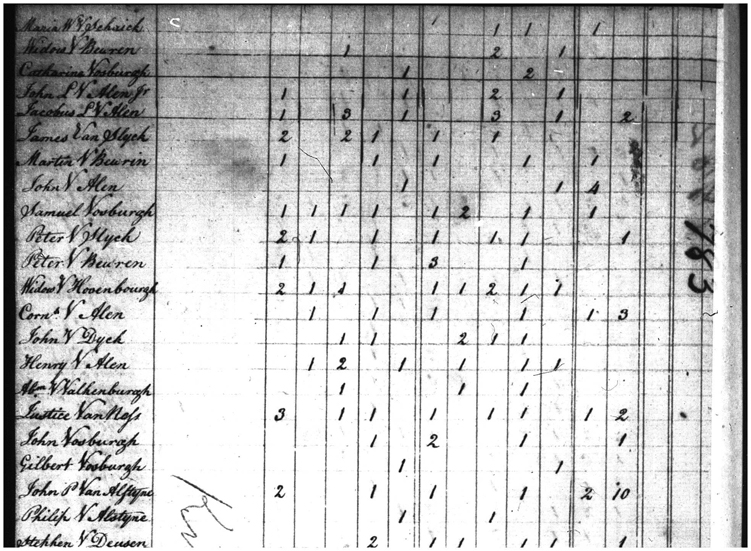 Maria W V Schaick 1 1 1
Widow V Beuren 1 2 1
Catharine Vosburgh 1 2
John L V Alen Jr 1 1 2 1
Jacobus L V Alen 1 3 1 3 1 2
James Van Slyck 2 2 1 1 1
Martin V Beuren 1 1 1 1 1
John V Alen 1 1 4
Samuel Vosburgh 1 1 1 1 1 2 1 1
Peter V Slyck 2 1 1 1 1 1 1
Peter V Beuren 1 1 3 1
Widow V Hovenbourgh 2 1 1 1 1 2 1 1
Corns. V Alen 1 1 1 1 1 3
John V Dyck 1 1 2 1 1
Henry V Alen 1 2 1 1 1 1
Abm V Valkenburgh 1 1 1
Justice Van Ness 3 1 1 1 1 1 1 2
John Vosburgh 1 2 1 1
Gilbert Vosburgh 1 1
John P Van Alstyne 2 1 1 1 2 10
Philip V Alstyne 1 1
Stephen V Deusen 2 1 1 1 1 1
783